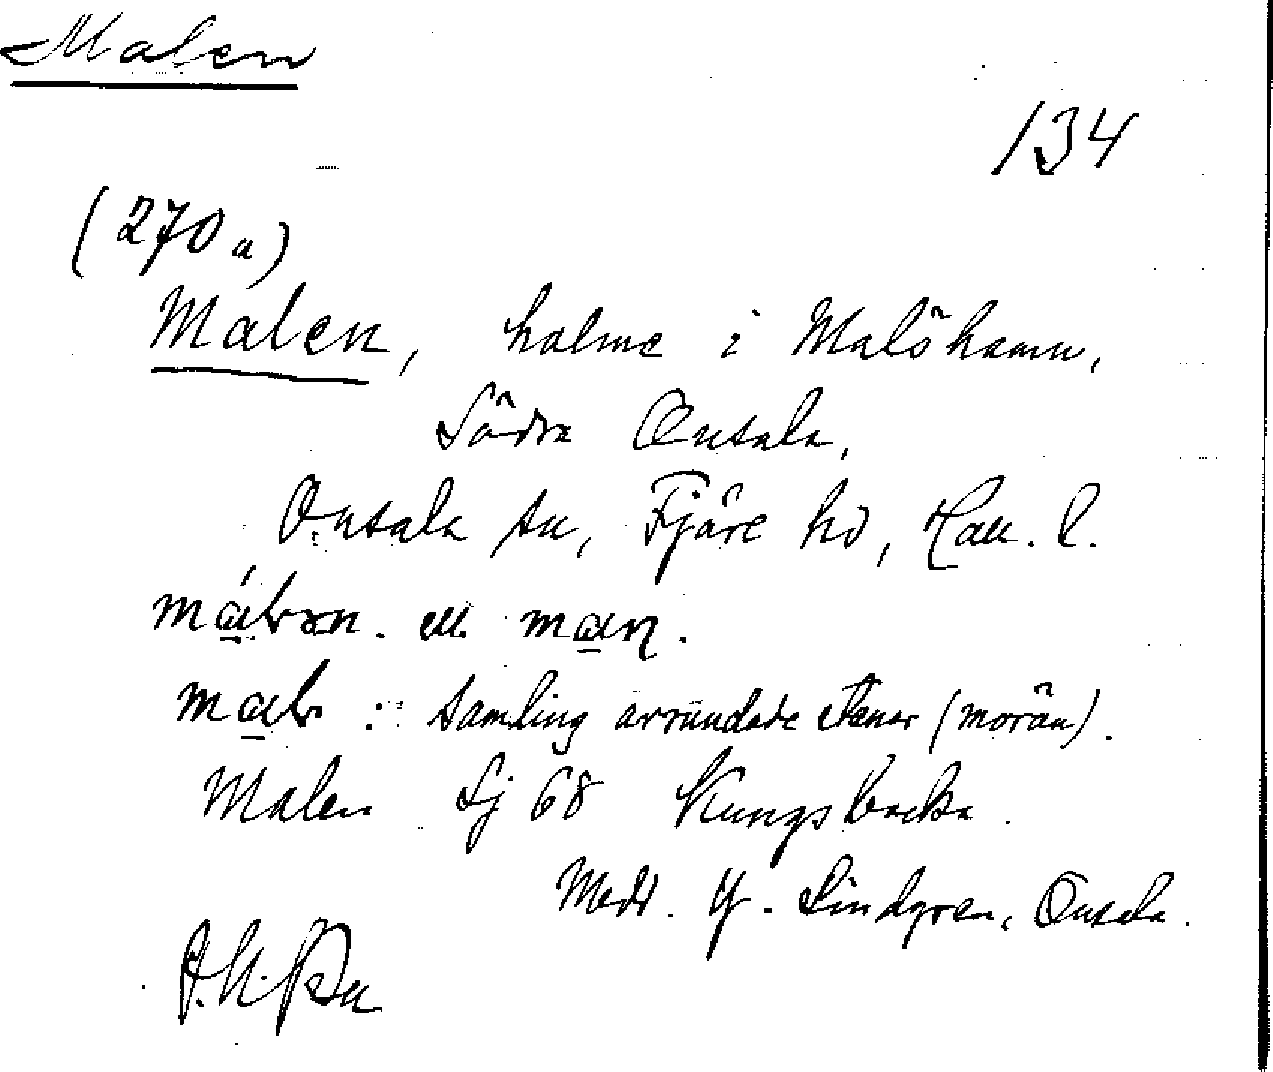 Malen
134
(270 a)
Malen, holme i Malöhamn,
Södra Onsala,
Onsala sn, Fjäre hd, Hall. l.
ell.
: samling avrundade stenar (morän).
Malen Sj 68 Kungsbacka.
Medd. Y. Lindgren, Onsala.